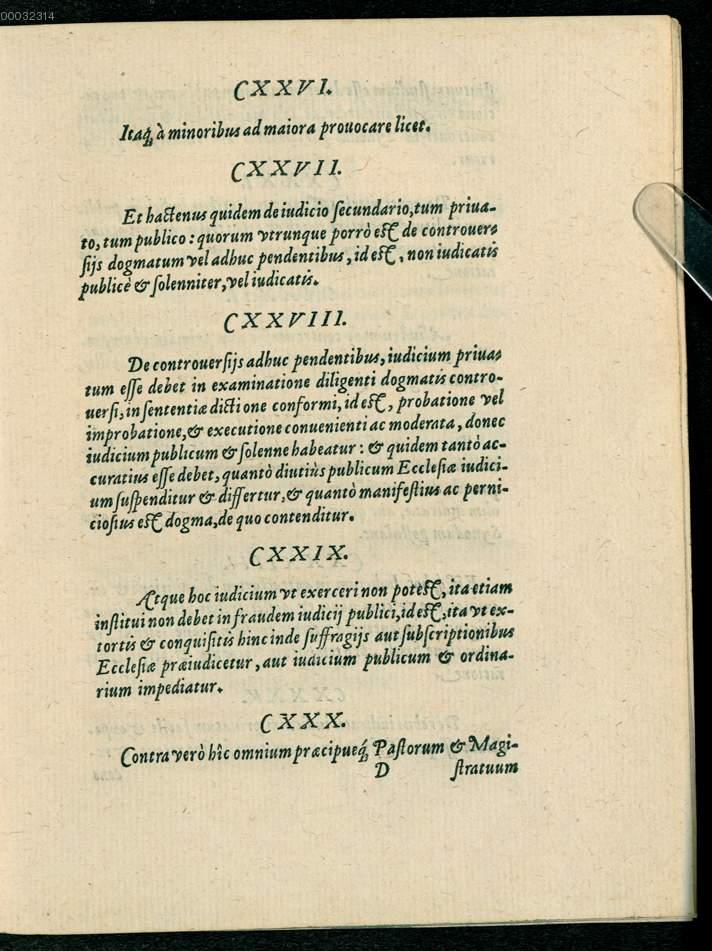 00032314
CXXVI.
Itaq́; à minoribus ad maiora prouocare licet.
CXXVII.
Et hactenus quidem de iudicio ſecundario, tum priua-
to, tum publico: quorum vtrunque porrò eſt de controuer-
ſijs dogmatum vel adhuc pendentibus, id eſt, non iudicatis
publicè & ſolenniter, vel iudicatis.
CXXVIII.
De controuerſijs adhuc pendentibus, iudicium priua-
tum eſſe debet in examinatione diligenti dogmatis contro-
uerſi, in ſententiæ dictione conformi, id eſt, probatione vel
improbatione, & executione conuenienti ac moderata, donec
iudicium publicum & ſolenne habeatur: & quidem tantò ac-
curatius eſſe debet, quantò diutiùs publicum Eccleſiæ iudici-
um ſuſpenditur & differtur, & quantò manifeſtius ac perni-
cioſius eſt dogma, de quo contenditur.
CXXIX.
Atque hoc iudicium vt exerceri non poteſt, ita etiam
inſtitui non debet in fraudem iudicij publici, id eſt, ita vt ex-
tortis & conquiſitis hinc inde ſuffragijs aut ſubſcriptionibus
Eccleſiæ præiudicetur, aut iudicium publicum & ordina-
rium impediatur.
CXXX.
Contra verò hîc omnium præcipueq́; Paſtorum & Magi-
D ſtratuum